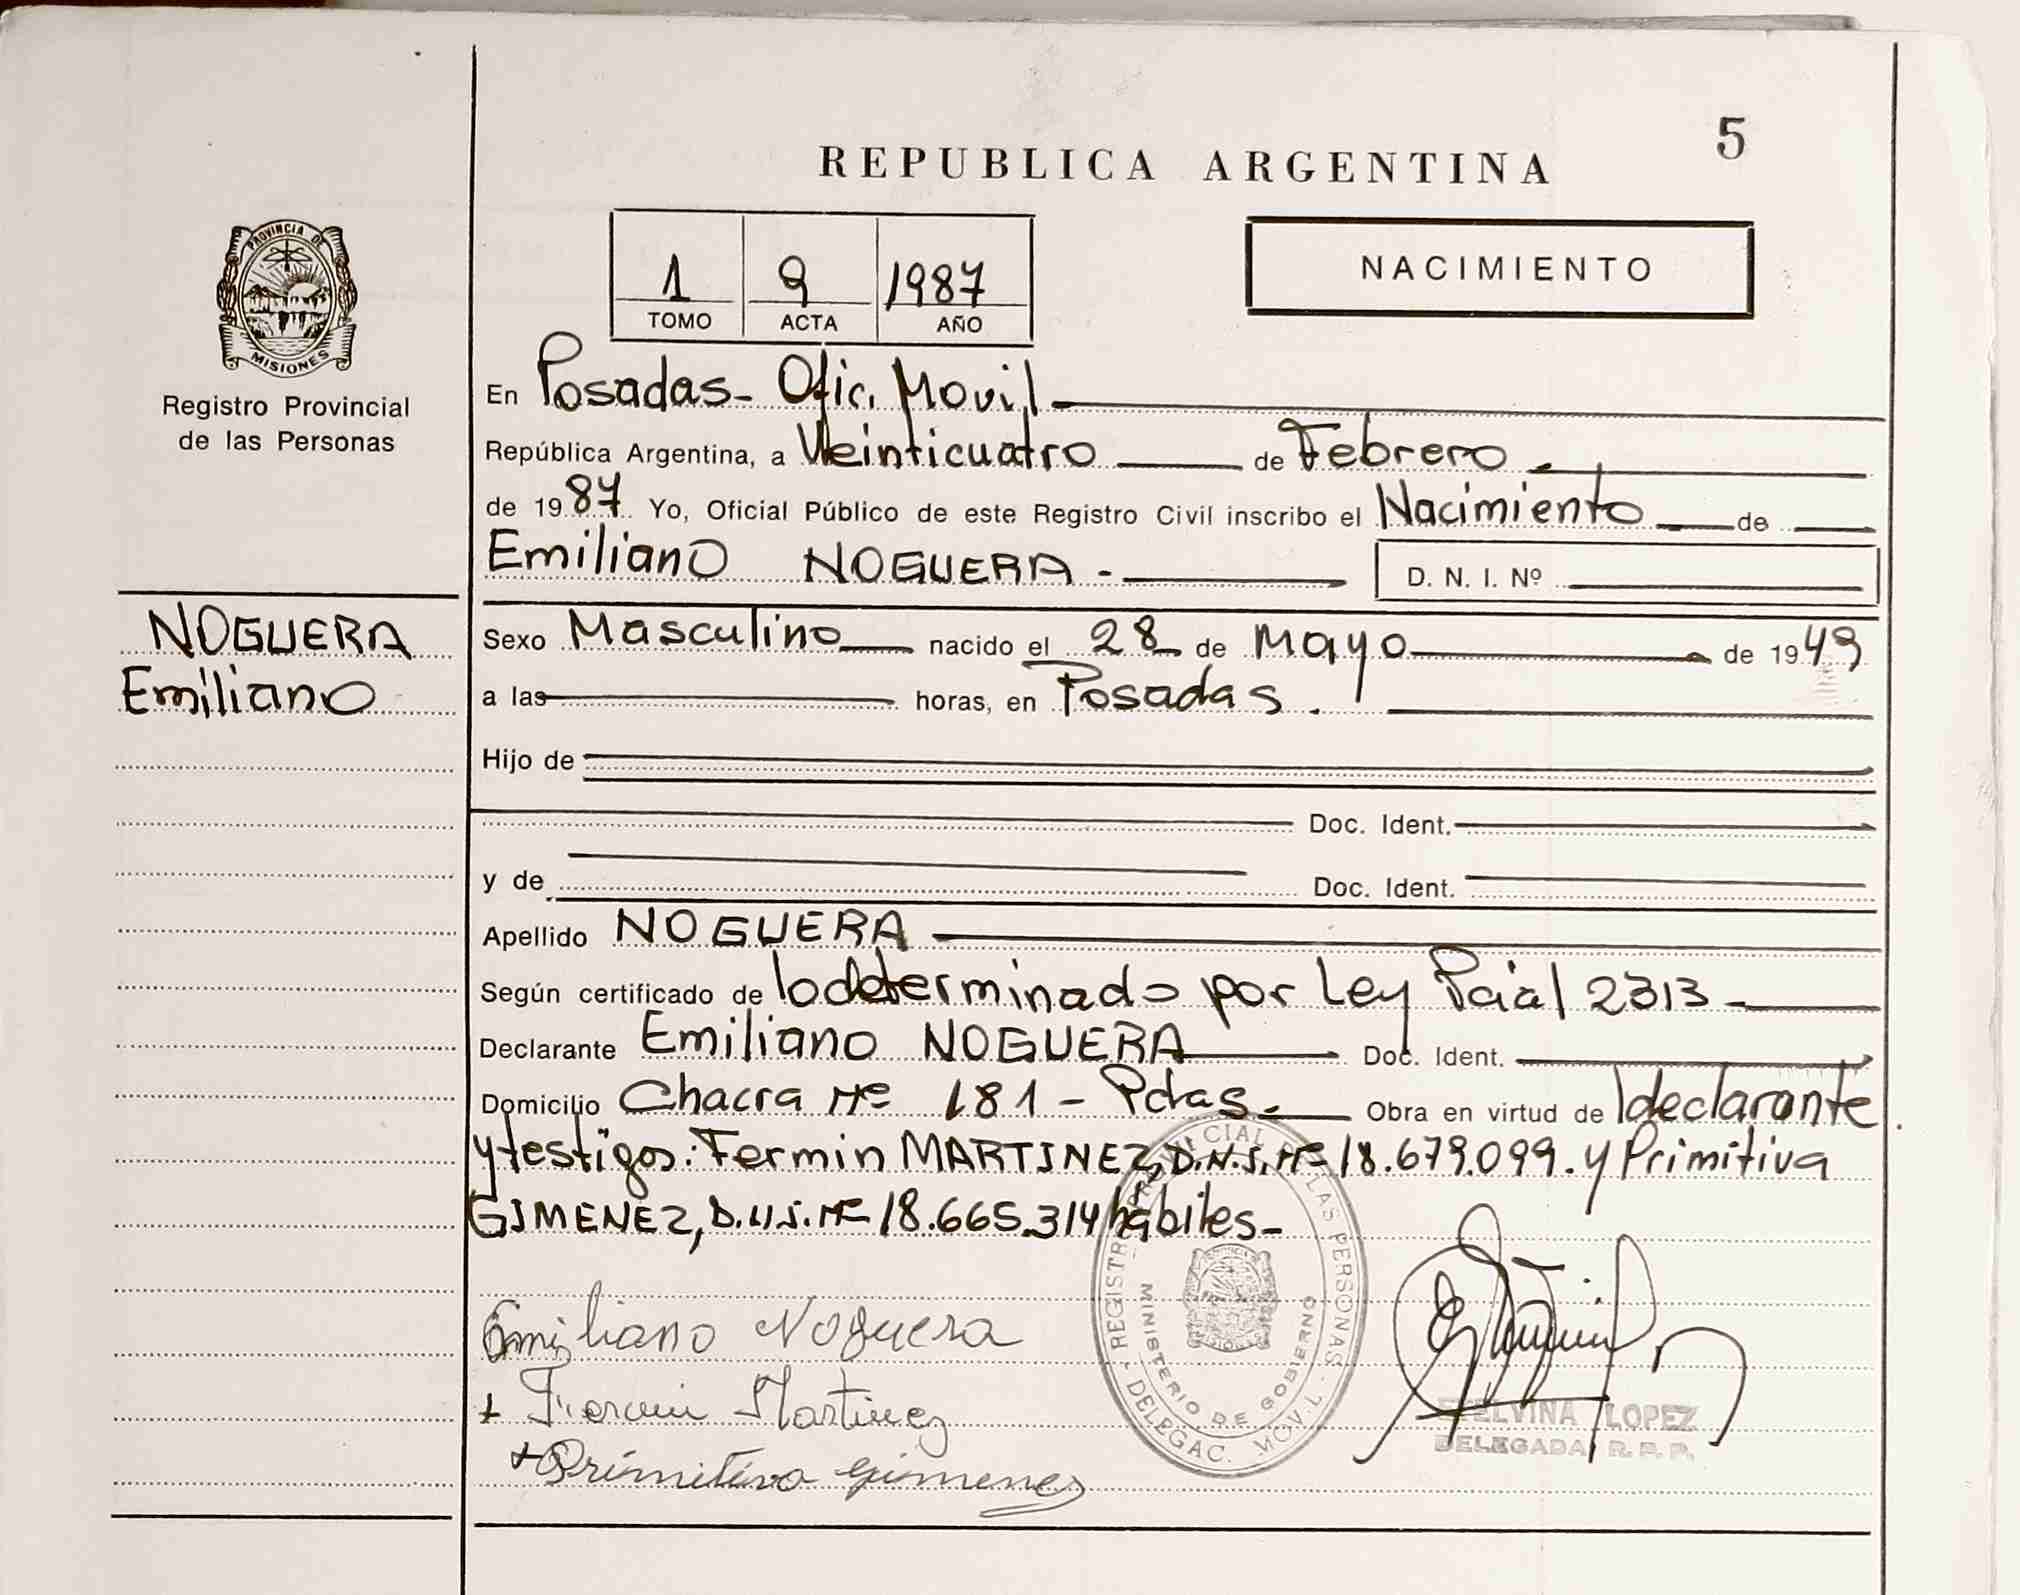 5
REPUBLICA ARGENTINA
PROVINCIA DE
MISIONES
Registro Provincial
de las Personas
1 9 1987
TOMO ACTA AÑO
NACIMIENTO
En Posadas - Ofic. Movil
República Argentina, a Veinticuatro de Febrero.
de 1987. Yo, Oficial Público de este Registro Civil inscribo el Nacimiento de
Emiliano NOGUERA - D. N. I. Nº
NOGUERA
Emiliano
Sexo Masculino nacido el 28 de Mayo de 1949
a las horas, en Posadas.
Hijo de
Doc. Ident.
y de Doc. Ident.
Apellido NOGUERA
Según certificado de lo determinado por Ley Pcial 2313 -
Declarante Emiliano NOGUERA Doc. Ident.
Domicilio Chacra Nº 181 - Pdas. Obra en virtud de l declarante
y testigos: Fermin MARTINEZ, D.N.I. Nº 18.679.099. y Primitiva
GIMENEZ, D.N.I. Nº 18.665.314 hábiles -
Emiliano Noguera
+ Fermin Martinez
+ Primitiva Gimenez
REGISTRO PROVINCIAL DE LAS PERSONAS
MINISTERIO DE GOBIERNO
DELEGAC. MOVIL
ETELVINA LOPEZ
DELEGADA R. P. P.